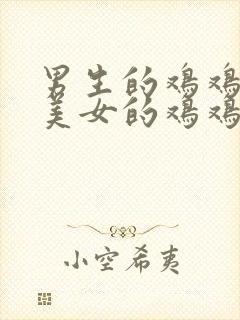 男生的鸡鸡
美女的鸡鸡
小空希夷